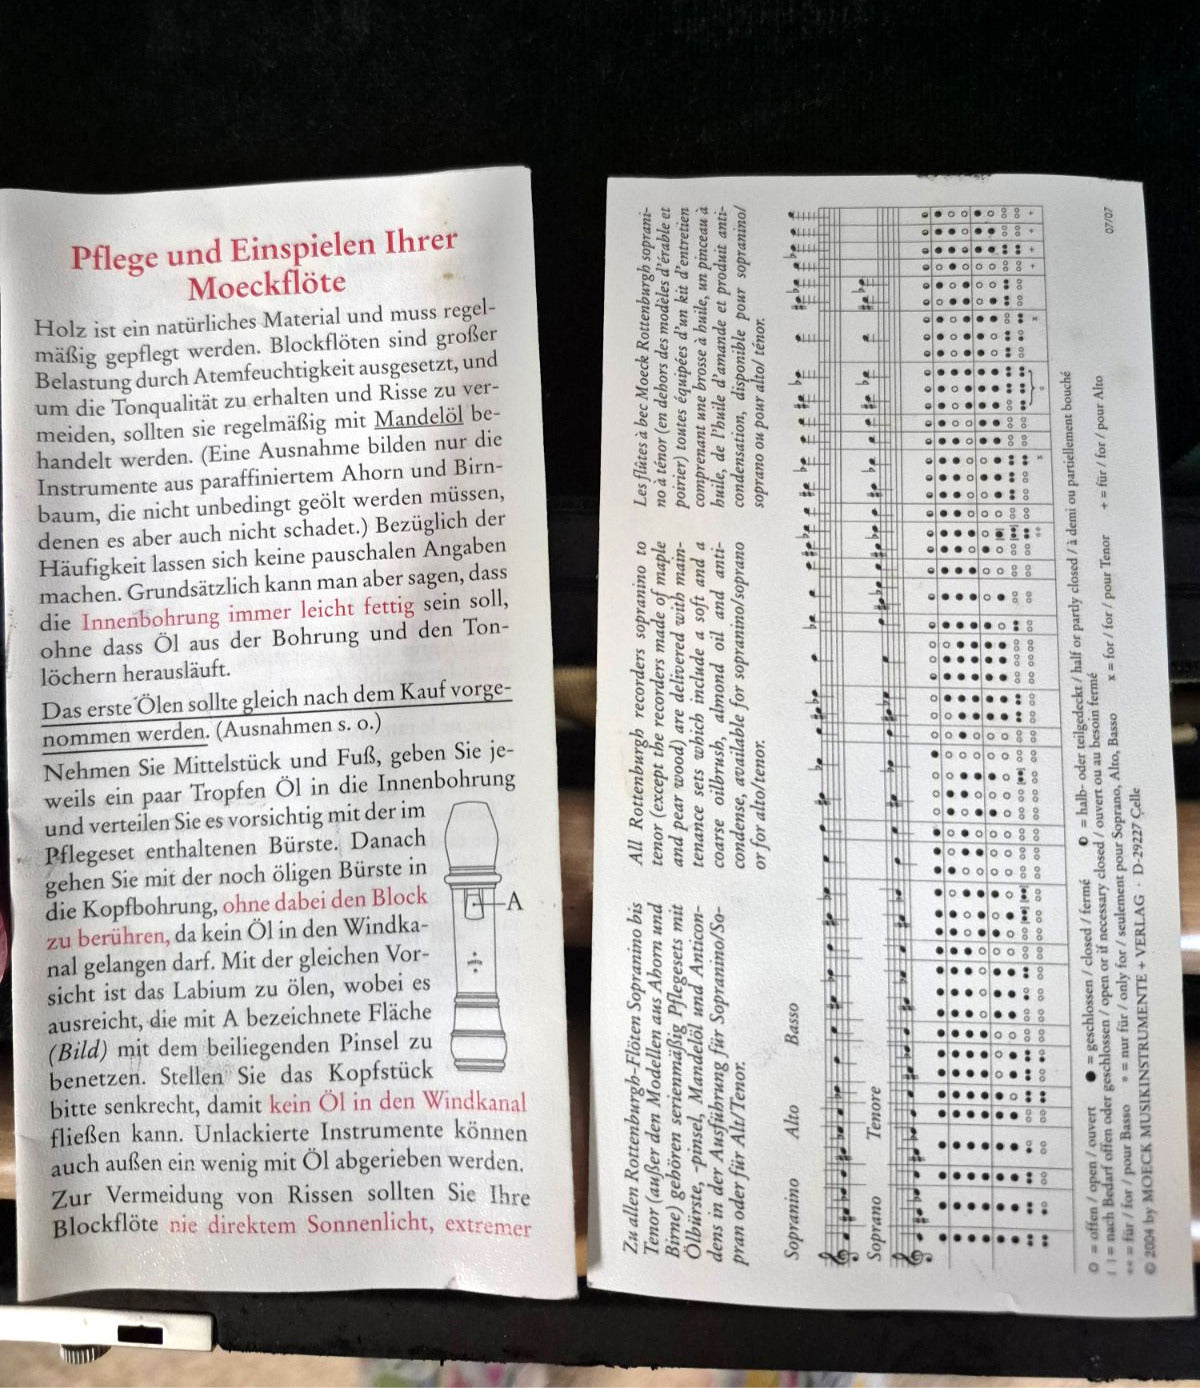 Pflege und Einspielen Ihrer
Moeckflöte
Holz ist ein natürliches Material und muss regel-
mäßig gepflegt werden. Blockflöten sind großer
Belastung durch Atemfeuchtigkeit ausgesetzt, und
um die Tonqualität zu erhalten und Risse zu ver-
meiden, sollten sie regelmäßig mit Mandelöl be-
handelt werden. (Eine Ausnahme bilden nur die
Instrumente aus paraffiniertem Ahorn und Birn-
baum, die nicht unbedingt geölt werden müssen,
denen es aber auch nicht schadet.) Bezüglich der
Häufigkeit lassen sich keine pauschalen Angaben
machen. Grundsätzlich kann man aber sagen, dass
die Innenbohrung immer leicht fettig sein soll,
ohne dass Öl aus der Bohrung und den Ton-
löchern herausläuft.
Das erste Ölen sollte gleich nach dem Kauf vorge-
nommen werden. (Ausnahmen s. o.)
Nehmen Sie Mittelstück und Fuß, geben Sie je-
weils ein paar Tropfen Öl in die Innenbohrung
und verteilen Sie es vorsichtig mit der im
Pflegeset enthaltenen Bürste. Danach
gehen Sie mit der noch öligen Bürste in
die Kopfbohrung, ohne dabei den Block
zu berühren, da kein Öl in den Windka-
nal gelangen darf. Mit der gleichen Vor-
sicht ist das Labium zu ölen, wobei es
ausreicht, die mit A bezeichnete Fläche
(Bild) mit dem beiliegenden Pinsel zu
benetzen. Stellen Sie das Kopfstück
bitte senkrecht, damit kein Öl in den Windkanal
fließen kann. Unlackierte Instrumente können
auch außen ein wenig mit Öl abgerieben werden.
Zur Vermeidung von Rissen sollten Sie Ihre
Blockflöte nie direktem Sonnenlicht, extremer
A
Zu allen Rottenburgh-Flöten Sopranino bis
Tenor (außer den Modellen aus Ahorn und
Birne) gehören serienmäßig Pflegesets mit
Ölbürste, -pinsel, Mandelöl und Anticon-
dens in der Ausführung für Sopranino/So-
pran oder für Alt/Tenor.
All Rottenburgh recorders sopranino to
tenor (except the recorders made of maple
and pear wood) are delivered with main-
tenance sets which include a soft and a
coarse oilbrush, almond oil and anti-
condense, available for sopranino/soprano
or for alto/tenor.
Les flûtes à bec Moeck Rottenburgh soprani-
no à ténor (en dehors des modèles d'érable et
poirier) toutes équipées d'un kit d'entretien
comprenant une brosse à huile, un pinceau à
huile, de l'huile d'amande et produit anti-
condensation, disponible pour sopranino/
soprano ou pour alto/ ténor.
Sopranino Alto Basso
Soprano Tenore
○ = offen / open / ouvert ● = geschlossen / closed / fermé ◐ = halb- oder teilgedeckt / half or partly closed / à demi ou partiellement bouché
( ) = nach Bedarf offen oder geschlossen / open or if necessary closed / ouvert ou au besoin fermé
** = für / for / pour Basso * = nur für / only for / seulement pour Soprano, Alto, Basso x = for / for / pour Tenor + = für / for / pour Alto
© 2004 by MOECK MUSIKINSTRUMENTE + VERLAG · D-29227 Celle
07/07